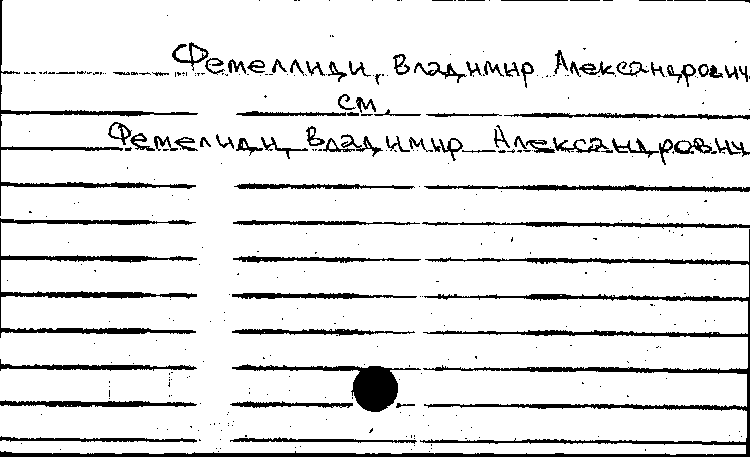 Фемеллиди, Владимир Александрович
см.
Фемелиди, Владимир Александрович